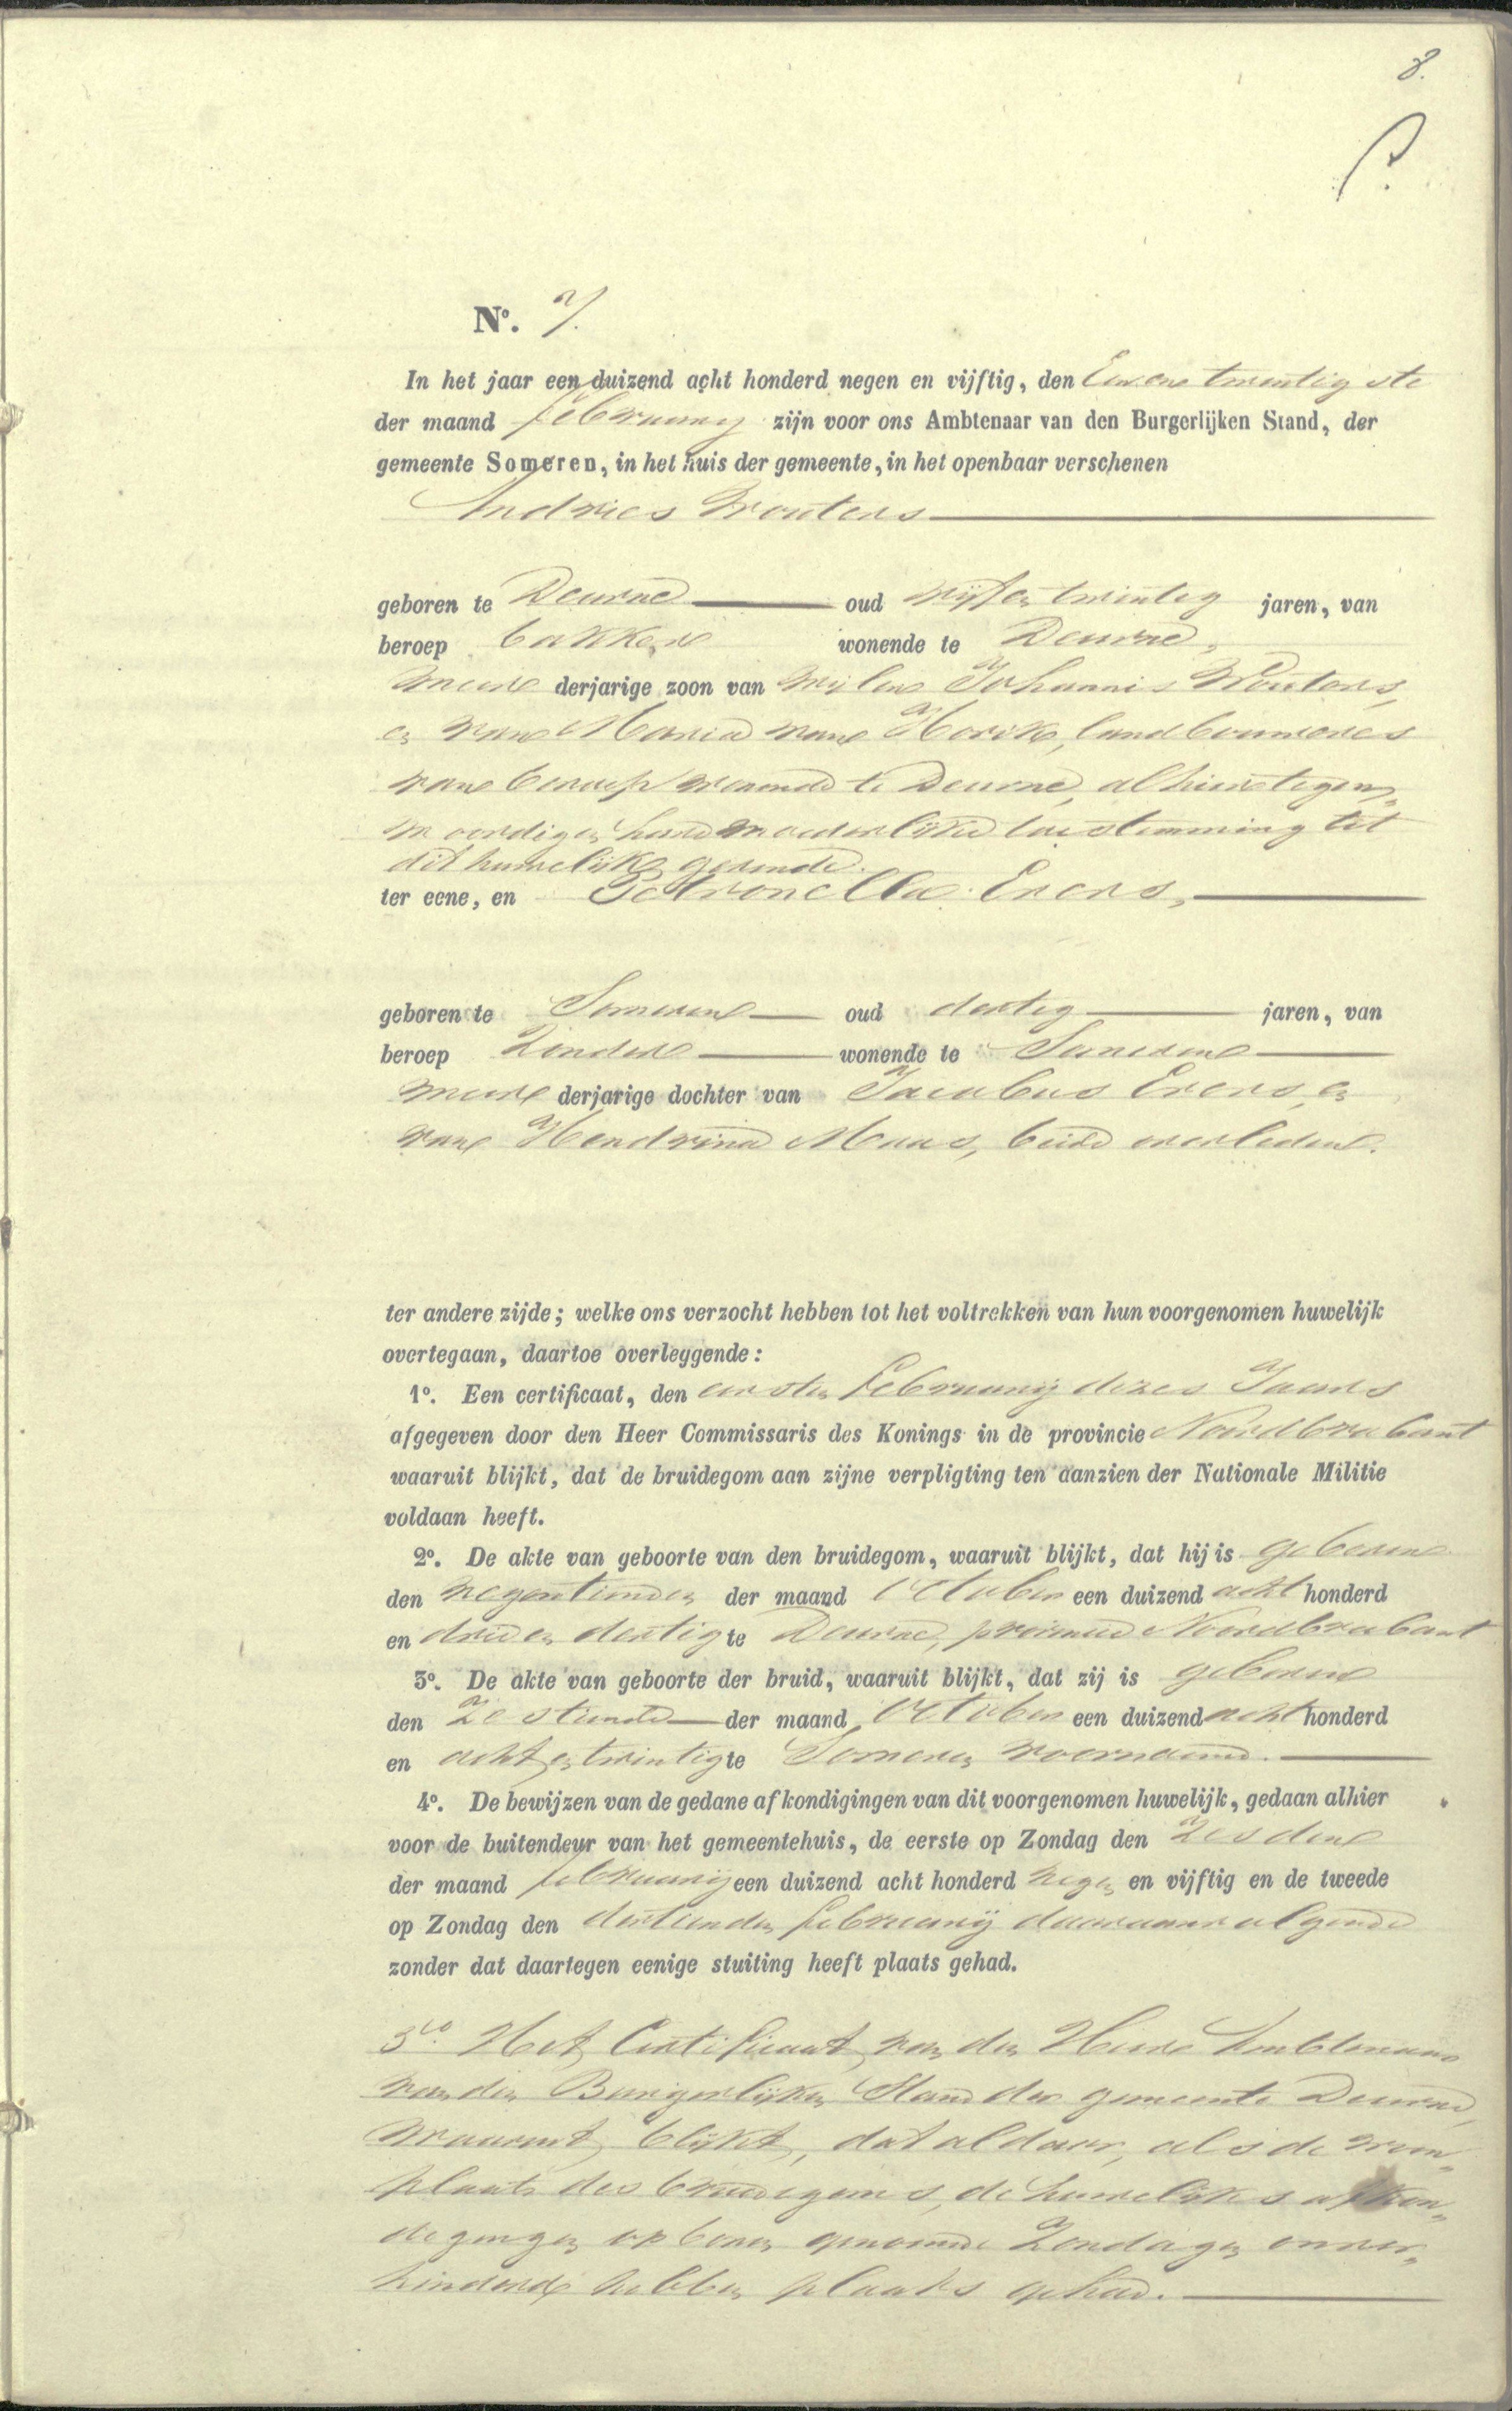 8.
No. 7.
In het jaar een duizend acht honderd negen en vijftig, den Een en twintigste
der maand februarij zijn voor ons Ambtenaar van den Burgerlijken Stand, der
gemeente Someren, in het huis der gemeente, in het openbaar verschenen
Andries Wouters
geboren te Deurne oud vijf en twintig jaren, van
beroep bakker wonende te Deurne,
meerderjarige zoon van wijlen Johannis Wouters,
en van Maria van Horik, landbouweres
van beroep wonende te Deurne, alhier tegen„
woordig en hare moederlijke toestemming tot
dit huwelijk gevende.
ter eene, en Petronella Evers,
geboren te Someren oud dertig jaren, van
beroep Zonder wonende te Someren
meerderjarige dochter van Jacobus Evers en
van Hendrina Maas, beide overleden.
ter andere zijde; welke ons verzocht hebben tot het voltrekken van hun voorgenomen huwelijk
overtegaan, daartoe overleggende:
1o. Een certificaat, den eersten februarij dezes Jaars
afgegeven door den Heer Commissaris des Konings in de provincie Noordbrabant
waaruit blijkt, dat de bruidegom aan zijne verpligting ten aanzien der Nationale Militie
voldaan heeft.
2o. De akte van geboorte van den bruidegom, waaruit blijkt, dat hij is geboren
den negentienden der maand October een duizend acht honderd
en drie en dertig te Deurne, provincie Noordbrabant
3o. De akte van geboorte der bruid, waaruit blijkt, dat zij is geboren
den Zestiende der maand October een duizend acht honderd
en acht en twintig te Someren voornoemd.
4o. De bewijzen van de gedane afkondigingen van dit voorgenomen huwelijk, gedaan alhier
voor de buitendeur van het gemeentehuis, de eerste op Zondag den Zesden
der maand februarij een duizend acht honderd negen en vijftig en de tweede
op Zondag den dertienden februarij daaraanvolgende
zonder dat daartegen eenige stuiting heeft plaats gehad.
5o. Het Certificaat van den Heere Ambtenaar
van den Burgerlijken Stand der gemeente Deurne,
waaruit blijkt, dat aldaar, als de woon„
plaats des bruidegoms, de huwelijksafkon„
digingen op boven genoemde Zondagen onver„
hinderd hebben plaats gehad.